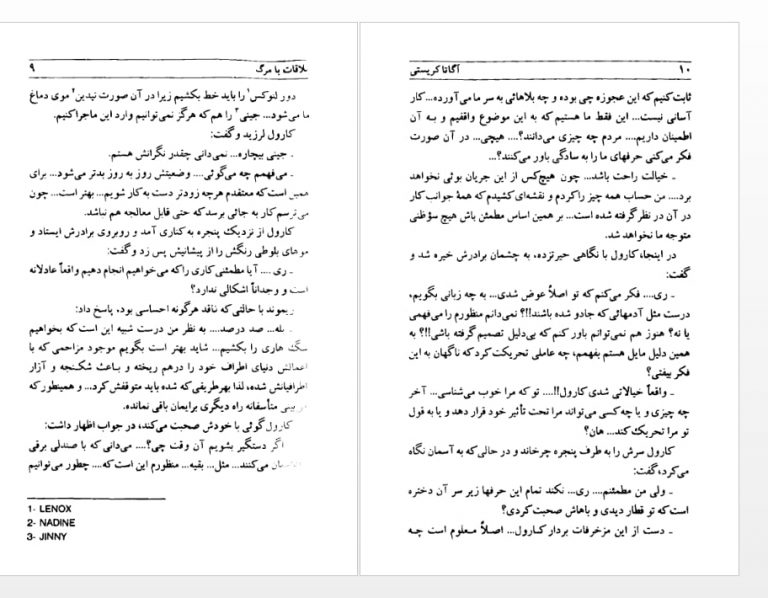 ۹ لاقات با مرگ
دور لنوکس¹ را باید خط بکشیم زیرا در آن صورت نیدین² موی دماغ
ما می‌شود... جینی³ را هم که هرگز نمی‌توانیم وارد این ماجرا کنیم.
کارول لرزید و گفت:
ـ جینی بیچاره... نمی‌دانی چقدر نگرانش هستم.
ـ می‌فهمم چه می‌گوئی... وضعیتش روز به روز بدتر می‌شود... برای
همین است که معتقدم هرچه زودتر دست به کار شویم... بهتر است... چون
می‌ترسم کار به جائی برسد که حتی قابل معالجه هم نباشد.
کارول از نزدیک پنجره به کناری آمد و روبروی برادرش ایستاد و
موهای بلوطی رنگش را از پیشانیش پس زد و گفت:
ـ ری .... آیا مطمئنی کاری را که می‌خواهیم انجام دهیم واقعاً عادلانه
است و وجداناً اشکالی ندارد؟
ریموند با حالتی که ناقد هرگونه احساسی بود، پاسخ داد:
ـ بله... صد درصد.... به نظر من درست شبیه این است که بخواهیم
سگ هاری را بکشیم... شاید بهتر است بگویم موجود مزاحمی که با
اعمالش دنیای اطراف خود را درهم ریخته و باعث شکنجه و آزار
اطرافیانش شده، لذا بهرطریقی که شده باید متوقفش کرد... و همینطور که
می‌بینی متأسفانه راه دیگری برایمان باقی نمانده.
کارول گوئی با خودش صحبت می‌کند، در جواب اظهار داشت:
اگر دستگیر بشویم آن وقت چی؟.... می‌دانی که با صندلی برقی
می‌کنند... مثل... بقیه... منظورم این است که.... چطور می‌توانیم
1- LENOX
2- NADINE
3- JINNY
۱۰ آگاتا کریستی
ثابت کنیم که این عجوزه چی بوده و چه بلاهائی به سر ما می‌آورده... کار
آسانی نیست... این فقط ما هستیم که به این موضوع واقفیم و به آن
اطمینان داریم.... مردم چه چیزی می‌دانند؟.... هیچی... در آن صورت
فکر می‌کنی حرفهای ما را به سادگی باور می‌کنند؟...
ـ خیالت راحت باشد... چون هیچ‌کس از این جریان بوئی نخواهد
برد.... من حساب همه چیز را کردم و نقشه‌ای کشیدم که همهٔ جوانب کار
در آن در نظر گرفته شده است... بر همین اساس مطمئن باش هیچ سؤظنی
متوجه ما نخواهد شد.
در اینجا، کارول با نگاهی حیرتزده، به چشمان برادرش خیره شد و
گفت:
ـ ری.... فکر می‌کنم که تو اصلاً عوض شدی... به چه زبانی بگویم،
درست مثل آدمهائی که جادو شده باشند!!؟ نمی‌دانم منظورم را می‌فهمی
یا نه؟ هنوز هم نمی‌توانم باور کنم که بی‌دلیل تصمیم گرفته باشی!!؟ به
همین دلیل مایل هستم بفهمم، چه عاملی تحریکت کرد که ناگهان به این
فکر بیفتی؟
ـ واقعاً خیالاتی شدی کارول!!.... تو که مرا خوب می‌شناسی... آخر
چه چیزی و یا چه کسی می‌تواند مرا تحت تأثیر خود قرار دهد و یا به قول
تو مرا تحریک کند... هان؟
کارول سرش را به طرف پنجره چرخاند و در حالی که به آسمان نگاه
می‌کرد، گفت:
ـ ولی من مطمئنم.... ری... نکند تمام این حرفها زیر سر آن دختره
است که تو قطار دیدی و باهاش صحبت کردی؟
ـ دست از این مزخرفات بردار کارول... اصلاً معلوم است چه